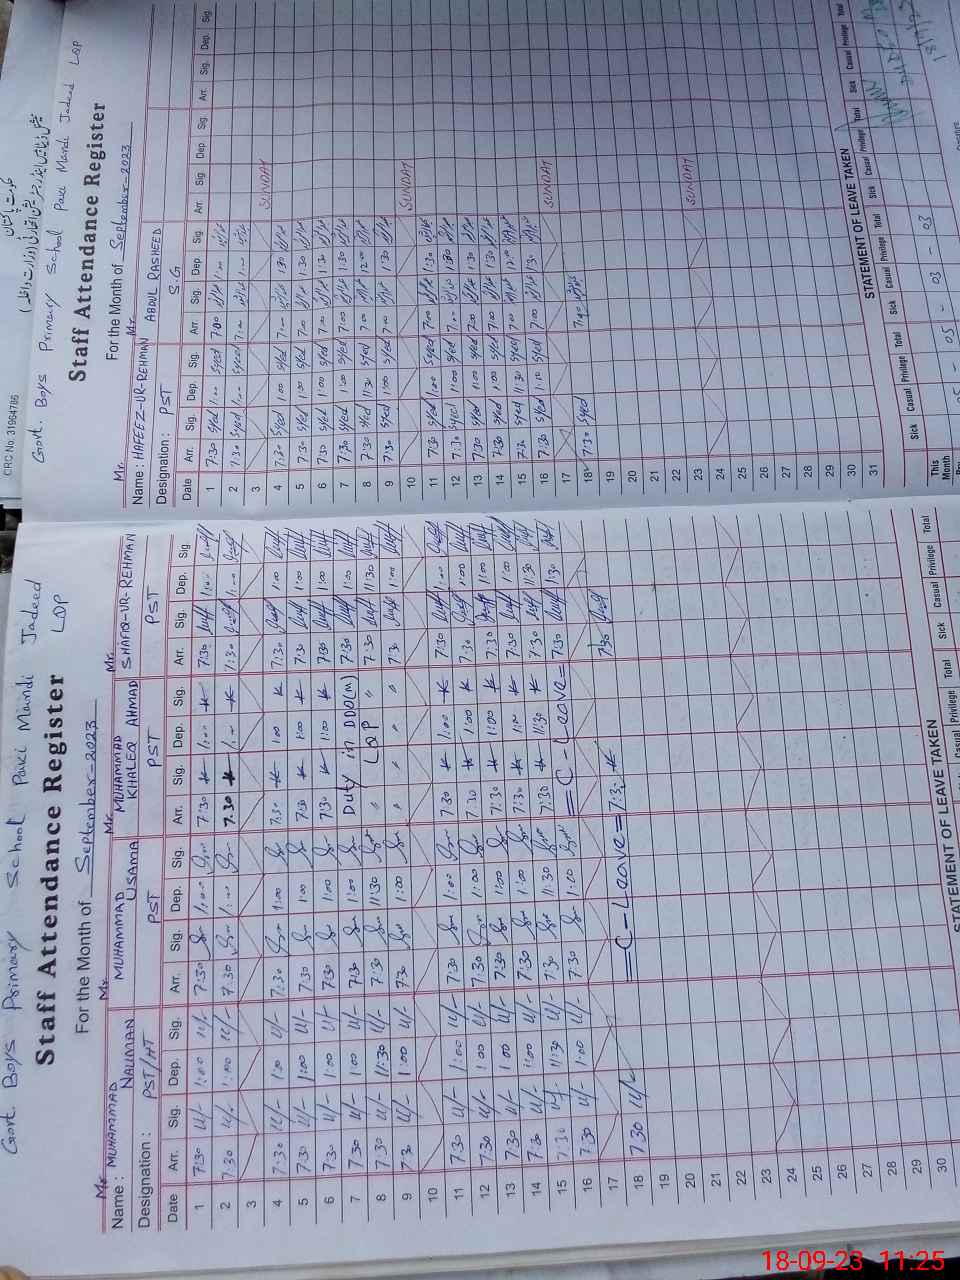 Govt. Boys Primary School Paki Mandi Jadeed
Staff Attendance Register LQP
For the Month of September-2023
Mr. Mr. Mr. Mr.
Name : MUHAMMAD NAUMAN MUHAMMAD USAMA MUHAMMAD KHALEQ AHMAD SHAFIQ-UR-REHMAN
Designation : PST/HT PST PST PST
Date Arr. Sig. Dep. Sig. Arr. Sig. Dep. Sig. Arr. Sig. Dep. Sig. Arr. Sig. Dep. Sig.
1 7:30 1:00 7:30 1:00 7:30 1:00 7:30 1:00
2 7:30 1:00 7:30 1:00 7:30 1:00 7:30 1:00
3
4 7:30 1:00 7:30 1:00 7:30 1:00 7:30 1:00
5 7:30 1:00 7:30 1:00 7:30 1:00 7:30 1:00
6 7:30 1:00 7:30 1:00 7:30 1:00 7:30 1:00
7 7:30 1:00 7:30 1:00 Duty in DDO(M) 7:30 1:00
8 7:30 11:30 7:30 11:30 " LQP " 7:30 11:30
9 7:30 1:00 7:30 1:00 " " " 7:30 1:00
10
11 7:30 1:00 7:30 1:00 7:30 1:00 7:30 1:00
12 7:30 1:00 7:30 1:00 7:30 1:00 7:30 1:00
13 7:30 1:00 7:30 1:00 7:30 1:00 7:30 1:00
14 7:30 1:00 7:30 1:00 7:30 1:00 7:30 1:00
15 7:30 11:30 7:30 11:30 7:30 11:30 7:30 11:30
16 7:30 1:00 7:30 1:00 =C-Leave= 7:30 1:30
17
18 7:30 =C-Leave= 7:30 7:30
19
20
21
22
23
24
25
26
27
28
29
30
STATEMENT OF LEAVE TAKEN
Casual Privilege Total Sick Casual Privilege Total
CRC No: 31964786
Govt. Boys Primary School Paki Mandi Jadeed LQP
Staff Attendance Register
For the Month of September-2023
Mr. Mr.
Name : HAFEEZ-UR-REHMAN ABDUL RASHEED
Designation : PST S.G
Date Arr. Sig. Dep. Sig. Arr. Sig. Dep. Sig. Arr. Sig. Dep. Sig. Arr. Sig. Dep. Sig.
1 7:30 Syed 1:00 Syed 7:00 1:00
2 7:30 Syed 1:00 Syed 7:00 1:00
3 SUNDAY
4 7:30 Syed 1:00 Syed 7:00 1:30
5 7:30 Syed 1:00 Syed 7:00 1:30
6 7:30 Syed 1:00 Syed 7:00 1:30
7 7:30 Syed 1:00 Syed 7:00 1:30
8 7:30 Syed 11:30 Syed 7:00 12:00
9 7:30 Syed 1:00 Syed 7:00 1:30
10 SUNDAY
11 7:30 Syed 1:00 Syed 7:00 1:30
12 7:30 Syed 1:00 Syed 7:00 1:30
13 7:30 Syed 1:00 Syed 7:00 1:30
14 7:30 Syed 1:00 Syed 7:00 1:30
15 7:30 Syed 11:30 Syed 7:00 12:00
16 7:30 Syed 1:10 Syed 7:00 1:30
17 SUNDAY
18 7:30 Syed 7:00
19
20
21
22
23
24 SUNDAY
25
26
27
28
29
30
31
STATEMENT OF LEAVE TAKEN
Sick Casual Privilege Total Sick Casual Privilege Total Sick Casual Privilege Total Sick Casual Privilege Total
This Month 05 - 05 - 03 - 03
18-09-23 11:25